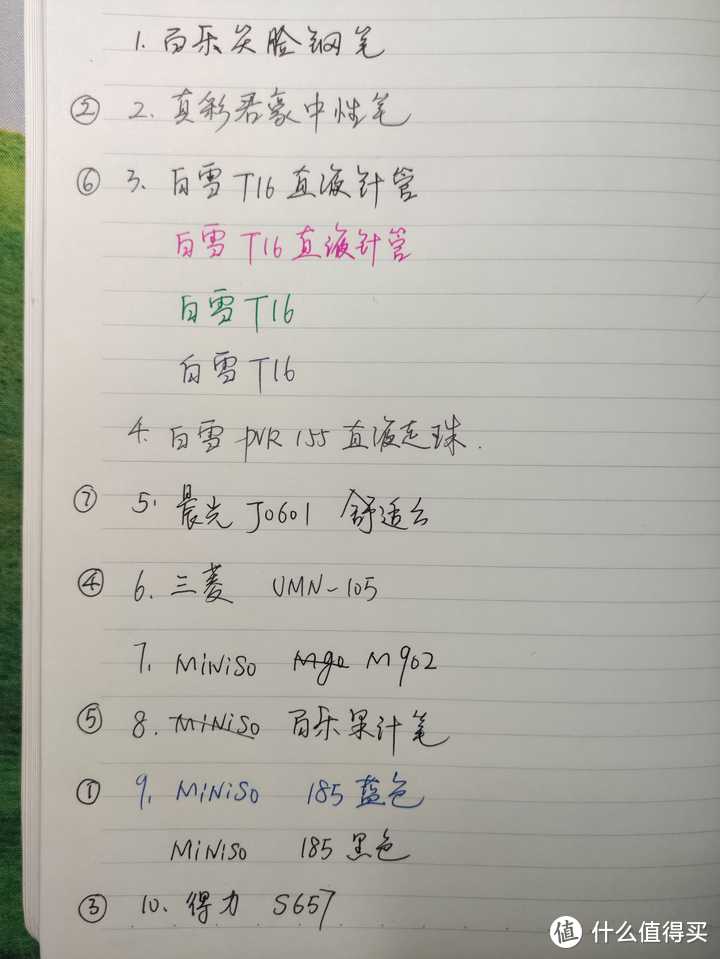 1. 百乐笑脸钢笔
② 2. 真彩君豪中性笔
⑥ 3. 白雪T16直液针管
白雪T16直液针管
白雪T16
白雪T16
4. 白雪 PVR 155 直液走珠.
⑦ 5. 晨光 J0601 舒适云
④ 6. 三菱 UMN-105
7. MiNiSo M90 M902
⑤ 8. MiNiSo 百乐果汁笔
① 9. MiNiSo 185 蓝色
MiNiSo 185 黑色
③ 10. 得力 S657
值 什么值得买